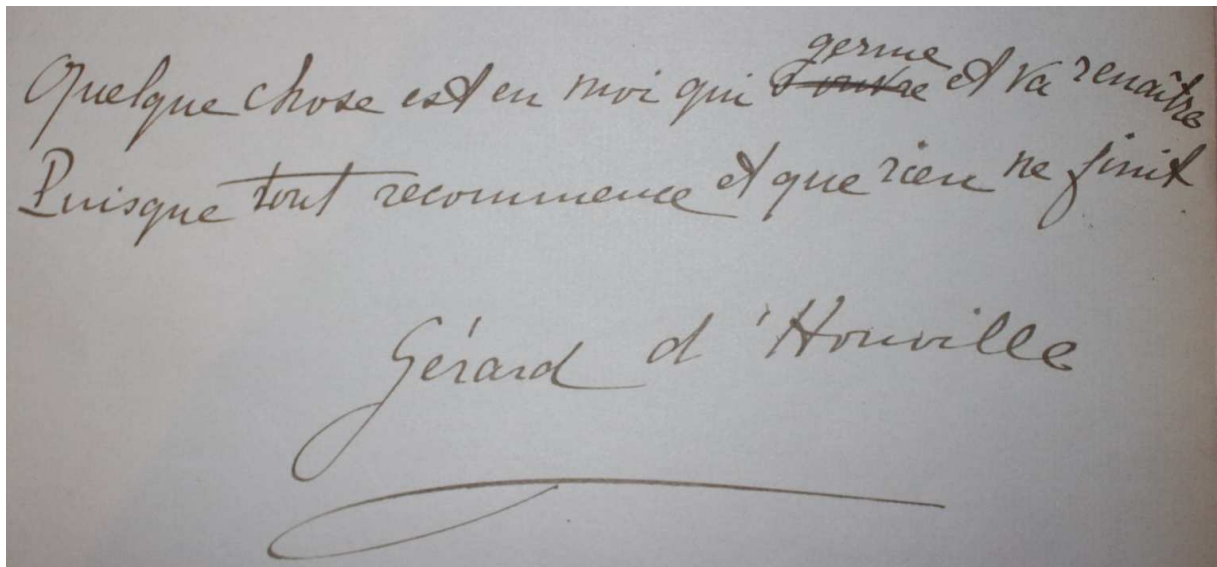 Quelque chose est en moi qui germe et va renaître
Puisque tout recommence et que rien ne finit
Gérard d'Houville